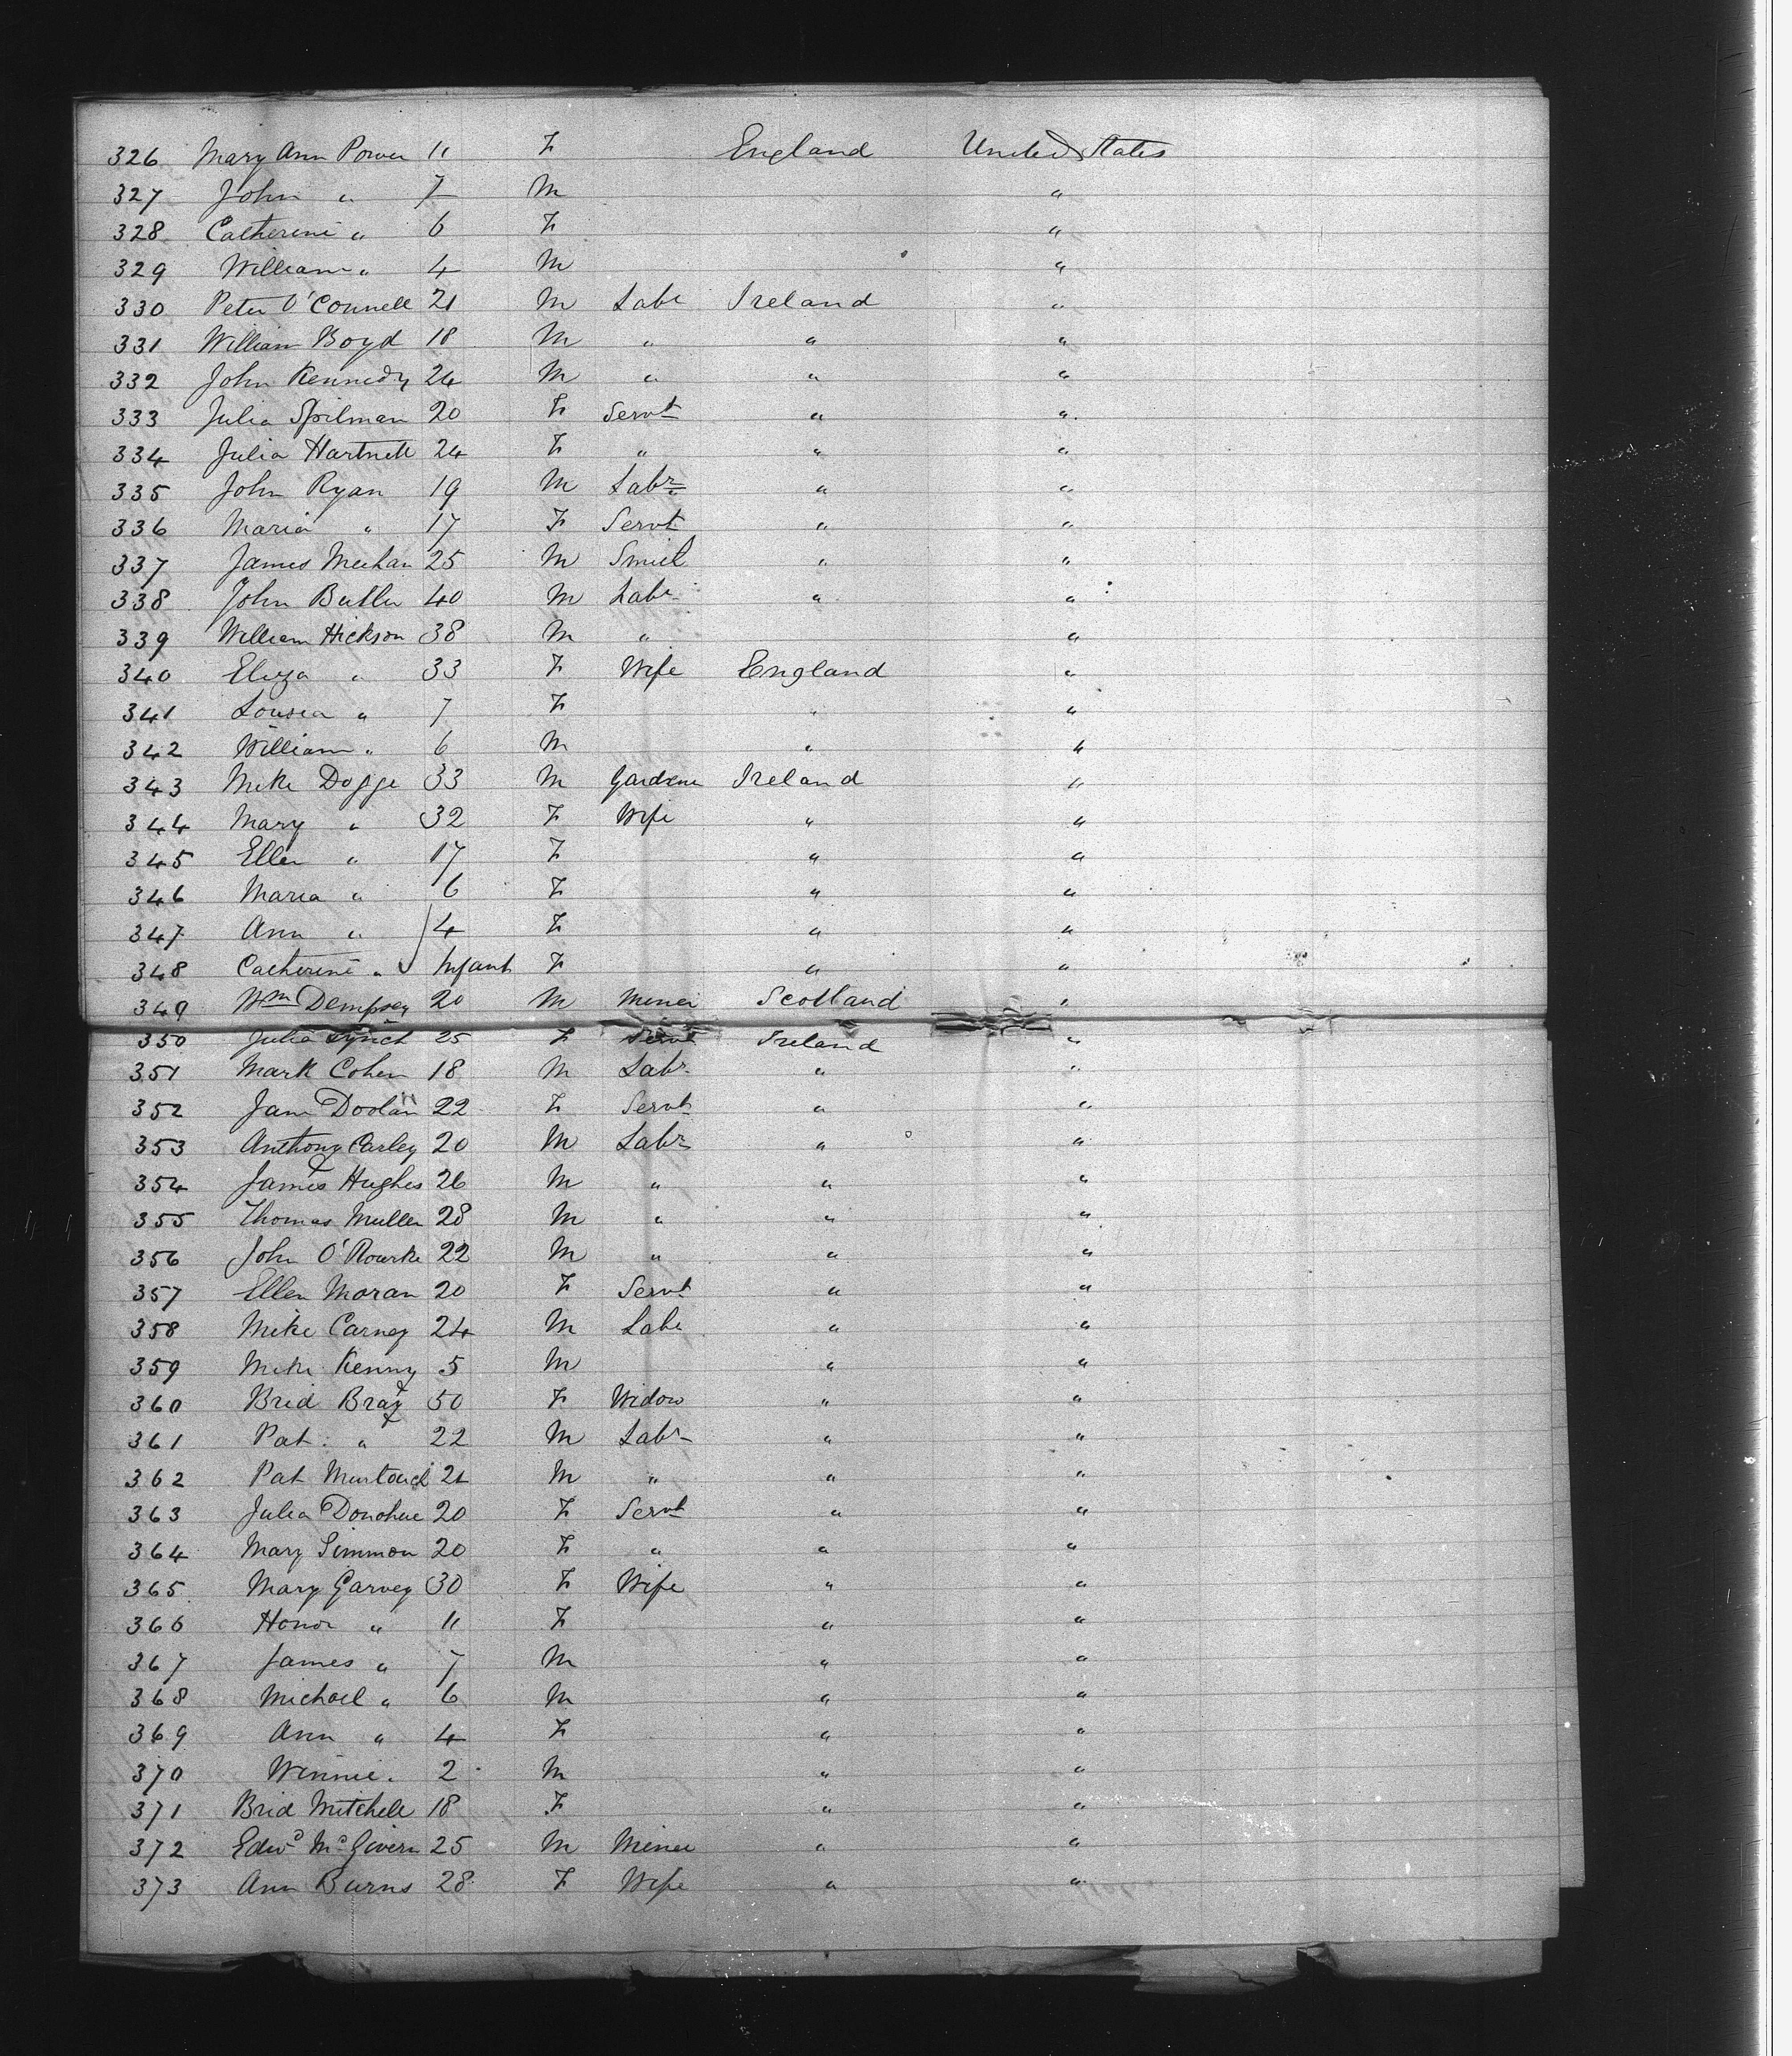 326 Mary Ann Power 11 F England United States
327 John " 7 M "
328 Catherine " 6 F "
329 William " 4 M "
330 Peter O'Connell 21 M Labr Ireland "
331 William Boyd 18 M " " "
332 John Kennedy 24 M " " "
333 Julia Spilman 20 F Servt " "
334 Julia Hartnett 24 F " " "
335 John Ryan 19 M Labr " "
336 Maria " 17 F Servt " "
337 James Meehan 25 M Smith " "
338 John Butler 40 M Labr " "
339 William Hickson 38 M " "
340 Eliza " 33 F Wife England "
341 Lousia " 7 F " "
342 William " 6 M " "
343 Mike Dogge 33 M Gardener Ireland "
344 Mary " 32 F Wife " "
345 Ellen " 17 F " "
346 Maria " 6 F " "
347 Ann " 4 F " "
348 Catherine " Infant F " "
349 Wm Dempsey 20 M Miner Scotland "
350 Julia Lynch 25 F Servt Ireland "
351 Mark Cohen 18 M Labr " "
352 Jane Doolan 22 F Servt " "
353 Anthony Carley 20 M Labr " "
354 James Hughes 26 M " " "
355 Thomas Mullen 28 M " " "
356 John O'Rourke 22 M " " "
357 Ellen Moran 20 F Servt " "
358 Mike Carney 24 M Labr " "
359 Mike Kenny 5 M " "
360 Brid Bray 50 F Widow " "
361 Pat " 22 M Labr " "
362 Pat 21 M " " "
363 Julia Donohue 20 F Servt " "
364 Mary Simmon 20 F " " "
365 Mary Garvey 30 F Wife " "
366 Honor " 11 F " "
367 James " 7 M " "
368 Michael " 6 M " "
369 Ann " 4 F " "
370 Winnie " 2 M " "
371 Brid Mitchell 18 F " "
372 Edwd McGivern 25 M Miner " "
373 Ann Burns 28 F Wife " "